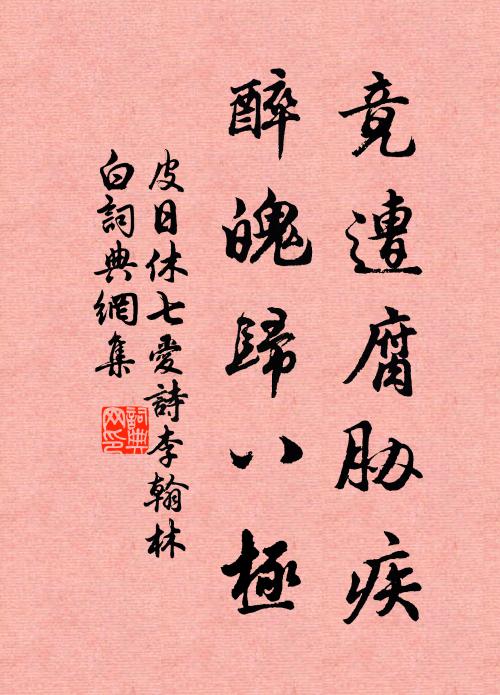 竟遭腐胁疾
醉魄歸八極
皮日休七愛詩李翰林
白詞典網集
詞典網印